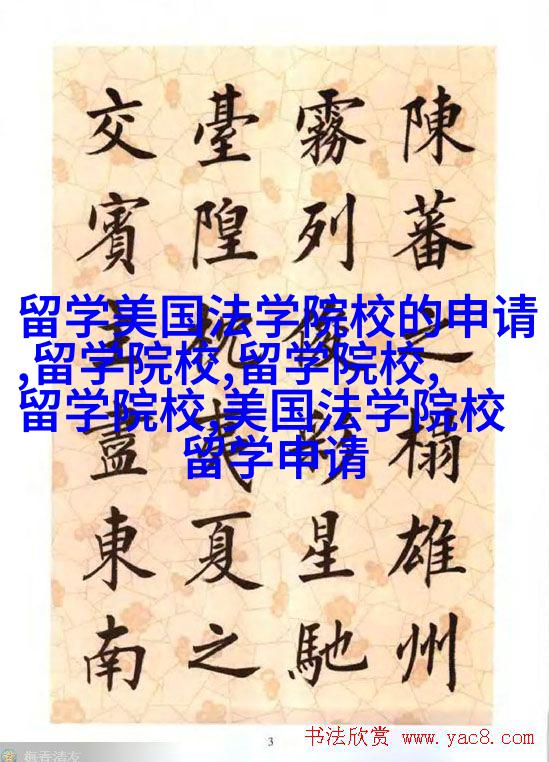 陳蕃之榻雄州
霧列俊星馳
臺隍枕夷夏之
交賓主盡東南
留学美国法学院校的申请
,留学院校,留学院校,
留学院校,美国法学院校
留学申请
3
书法欣赏 www.yac8.com